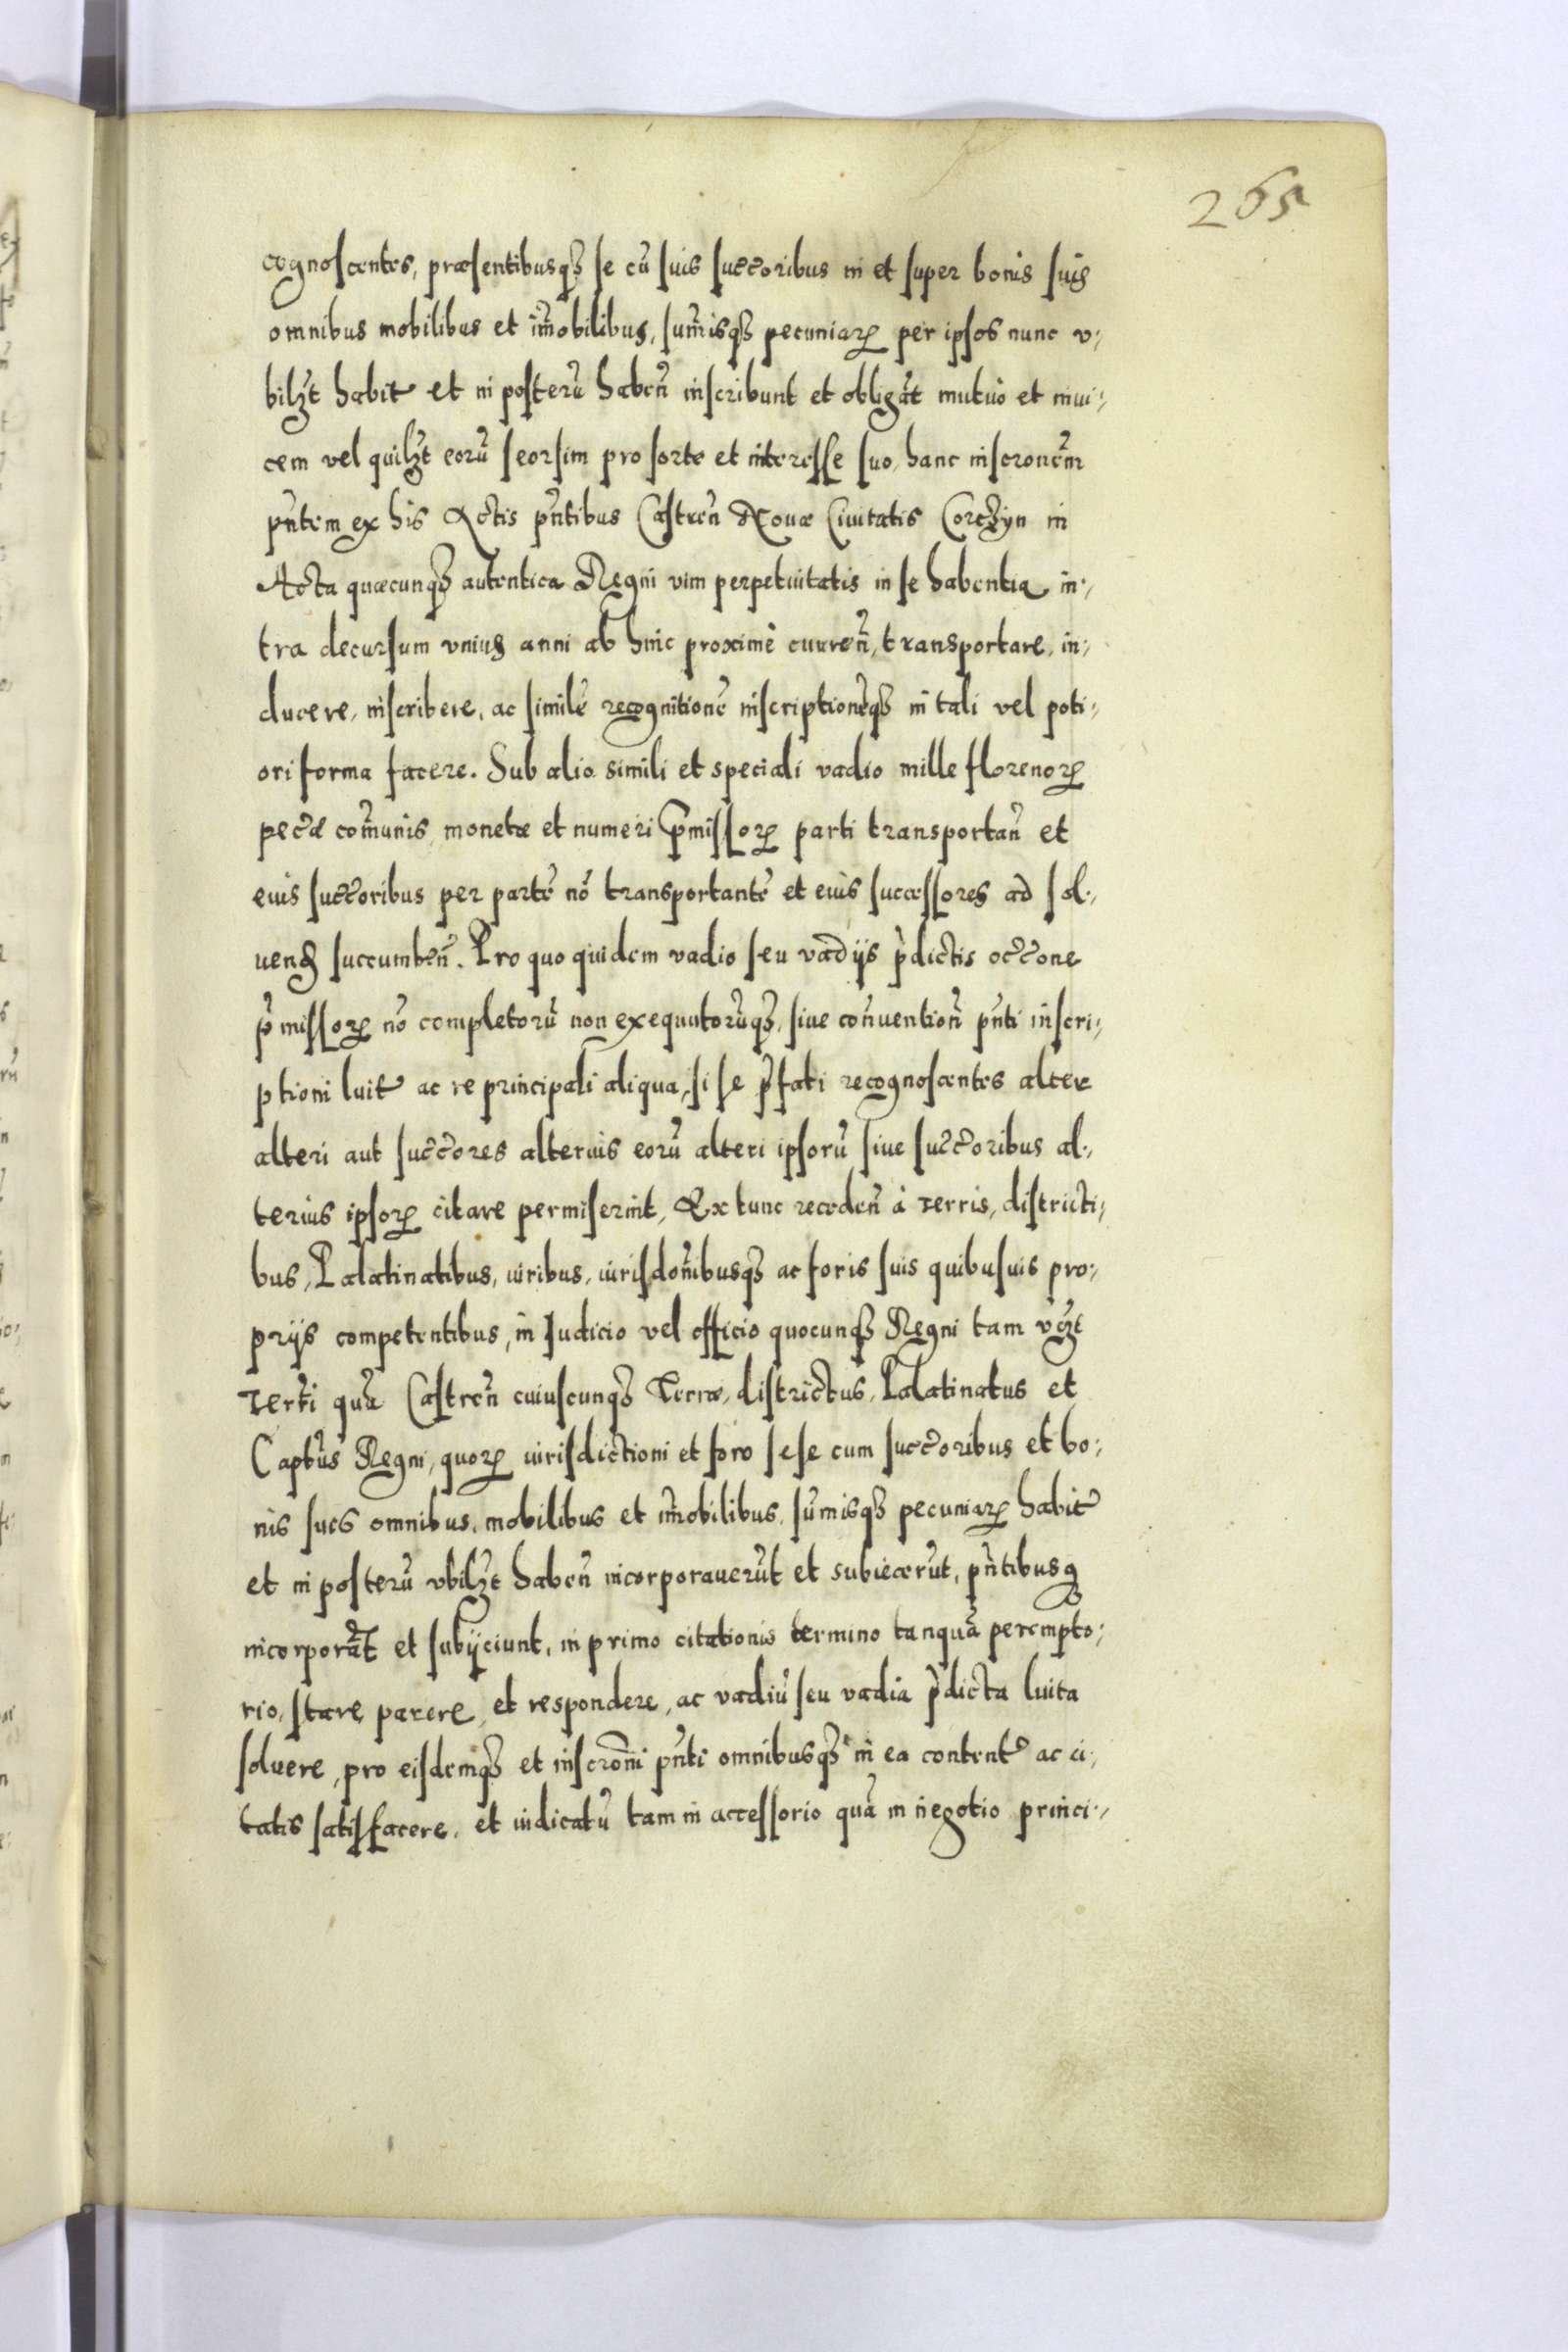 265
cognoscentes, præsentibusq₃ se cũ suis succ̃oribus in et super bonis suis
omnibus mobilibus et im̃obilibus, sum̃isq₃ pecuniarꝝ per ipsos nunc v⸗
bilꝫt habit̃ et in posterũ habeñ inscribunt et obligãt mutuò et inui⸗
cem vel quilꝫt eorũ seorsim pro sorte et interesse suo, hanc inscronẽm
pñtem ex his Actis pñtibus Castreñ Nouæ Ciuitatis Corczyn in
Acta quæcunq₃ autentica Regni vim perpetuitatis in se habentia in⸗
tra decursum vnius anni ab hinc proximè curreñ, transportare, in⸗
ducere, inscribere, ac similẽ recognitionẽ inscriptionẽq₃ in tali vel poti⸗
ori forma facere. Sub alio simili et speciali vadio mille florenorꝝ
pecæ̃ com̃unis monetæ et numeri p̃missorꝝ parti transportañ et
eius succ̃oribus per partẽ nõ transportantẽ et eius successores ad sol⸗
uend̃ succumbeñ. Pro quo quidem vadio seu vadijs p̃dictis occ̃one
p̃missorꝝ nõ completorũ non exequutorũq₃, siue conuentioñ pñti inscri⸗
ptioni luit̃ ac re principali aliqua, si se p̃fati recognoscentes alter
alteri aut succ̃ores alterius eorũ alteri ipsorũ siue succ̃oribus al⸗
terius ipsorꝝ citare permiserint, Ex tunc recedeñ à terris, districti⸗
bus, Palatinatibus, iuribus, iurisdom̃ibusq₃ ac foris suis quibusuis pro⸗
prijs competentibus, in Iudicio vel officio quocunq₃ Regni tam vꝫt
Terrĩ quã Castreñ cuiuscunq₃ Terræ, districtus, Palatinatus et
Captũs Regni, quorꝝ iurisdictioni et foro sese cum succ̃oribus et bo⸗
nis suis omnibus, mobilibus et im̃obilibus, sum̃isq₃ pecuniarꝝ habit̃
et in posterũ vbilꝫt habeñ incorporauerũt et subiecerũt, pñtibusq
incorporãt et subijciunt, in primo citationis termino tanquã perempto⸗
rio, stare, parere, et respondere, ac vadiũ seu vadia p̃dicta luita
soluere, pro eisdemq₃ et inscrõni pñti omnibusq₃ in ea content̃ ac ci⸗
tatis satisfacere, et iudicatũ tam in accessorio quã in negotio princi⸗